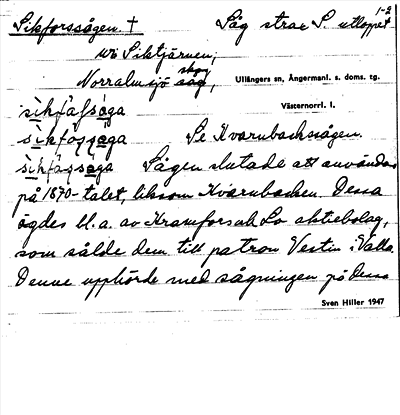 Sikforssågen. † Såg strax S. utloppet 1-2
ur Siktjärnen;
Norralmsjö skog, Ullångers sn, Ångermanl. s. doms. tg.
Västernorrl. l.
Se Kvarnbackssågen.
Sågen slutade att användas
på 1870-talet, liksom Kvarnbacken. Dessa
ägdes bl.a. av Kramfors och Lo aktiebolag,
som sålde dem till patron Vestin i Valla.
Denne upphörde med sågningen på Dessa
Sven Hiller 1947